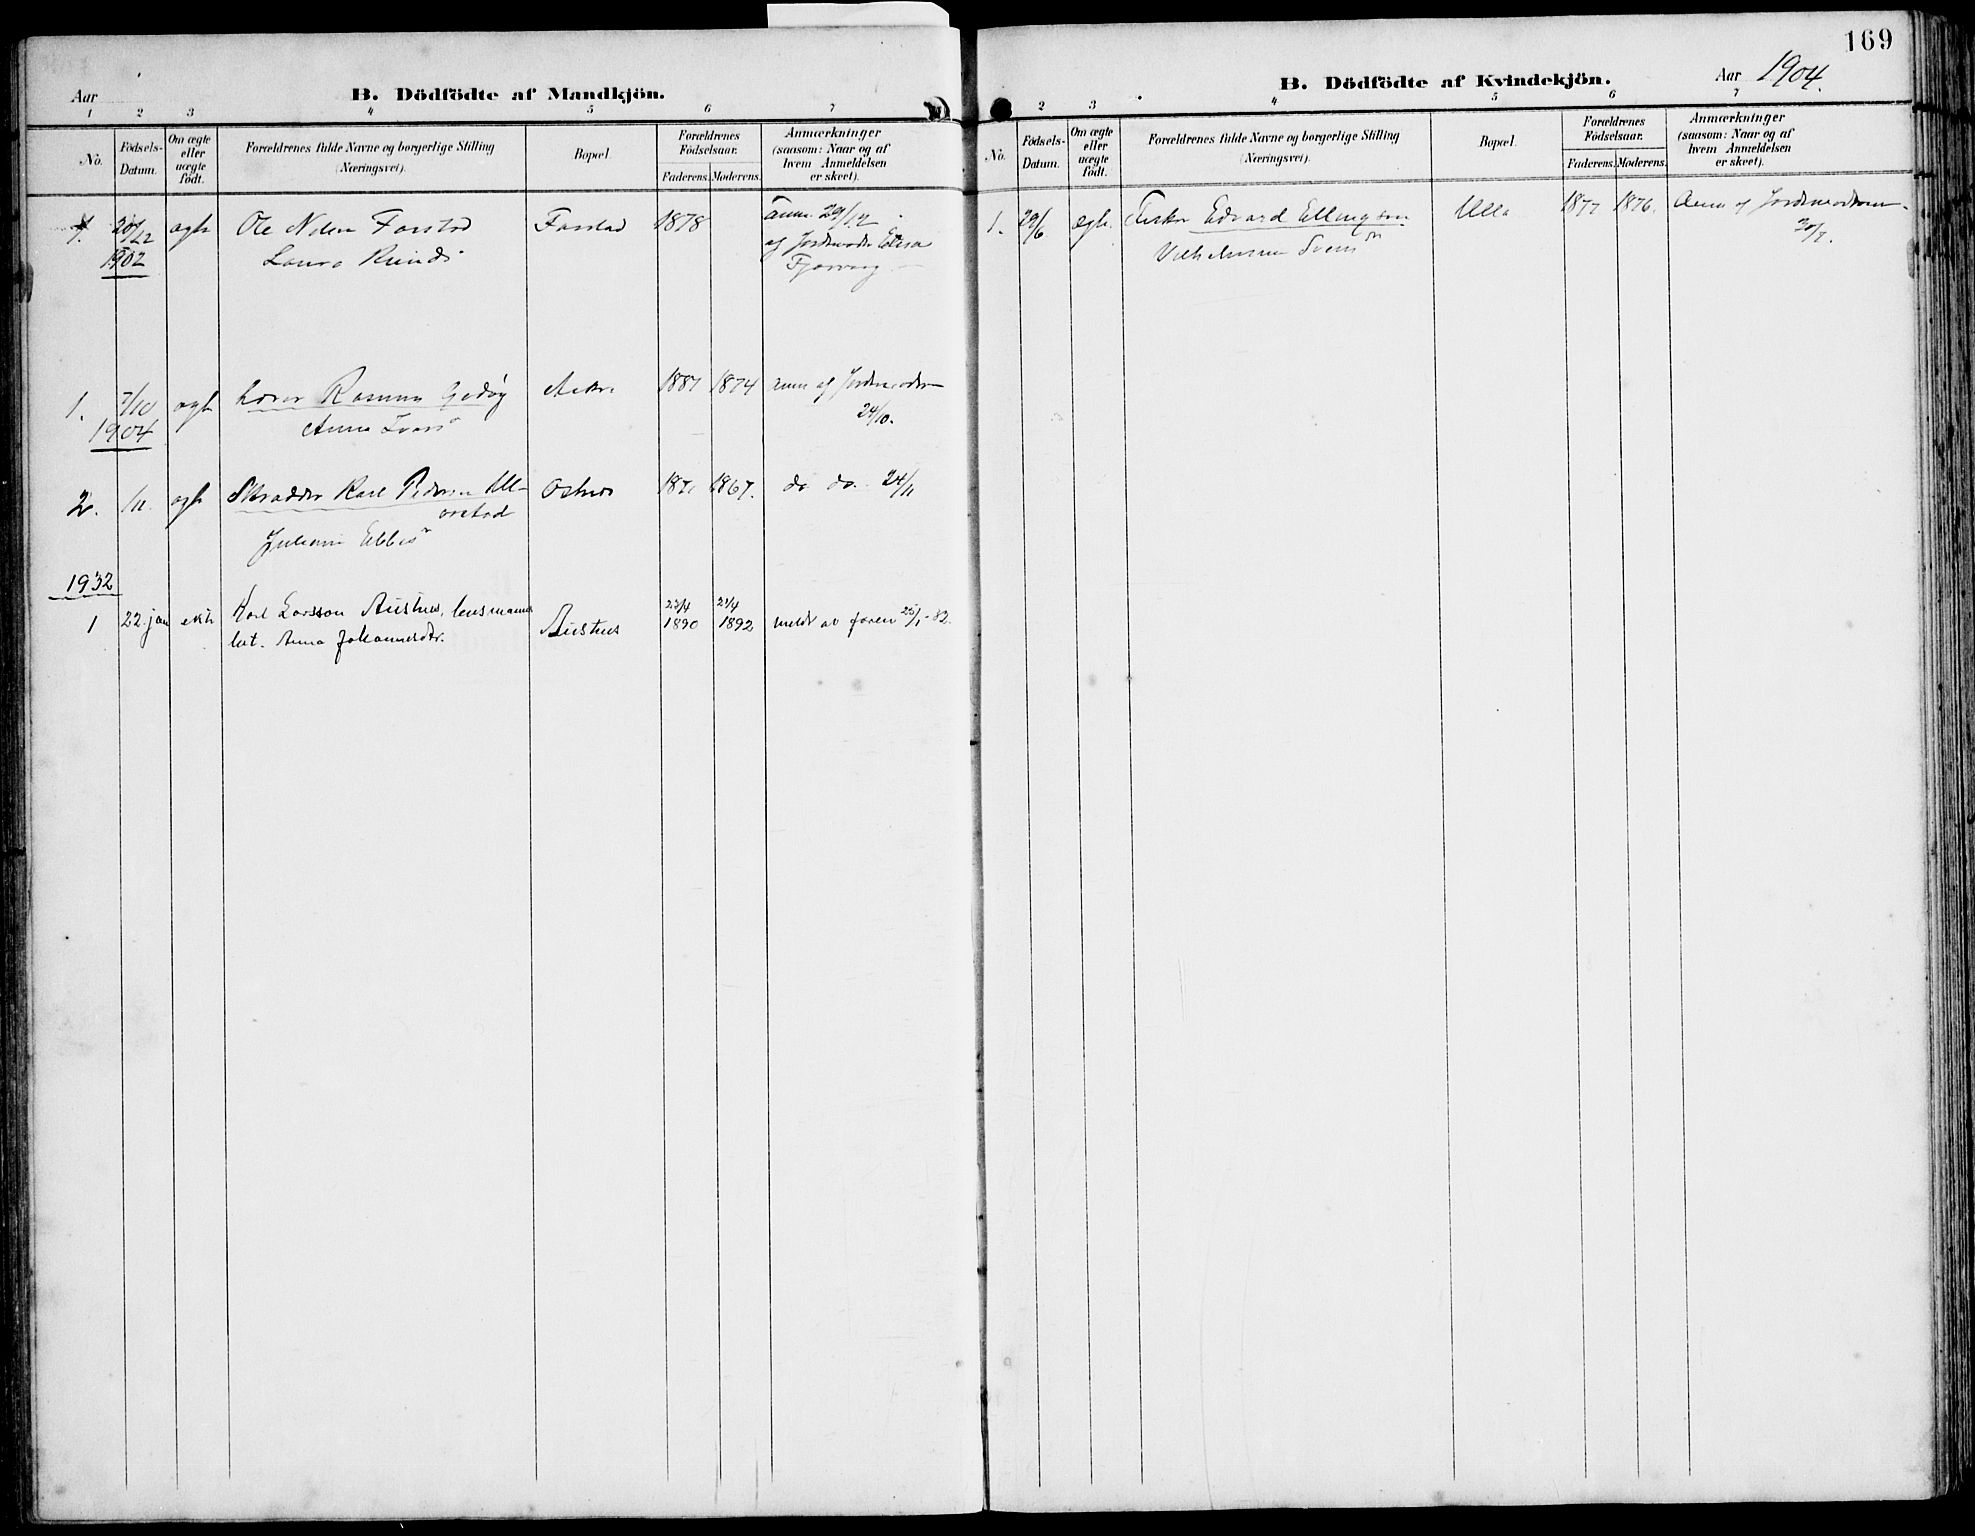 169
Aar
B. Dödfödte af Mandkjön.
1 2 3 4 5 6 7
No.
Födsels-
Datum.
Om ægte
eller
uægte
födt.
Forældrenes fulde Navne og borgerlige Stilling
(Næringsvei).
Bopæl.
Forældrenes
Födselsaar.
Faderens. Moderens.
Anmærkninger
(saasom: Naar og af
hvem Anmeldelsen
er skeet).
1. 20/12 ægte Ole Nilsen Farstad Farstad 1878 Anm. 29/12
1902 Laura af Jordmoder
1. 7/10 ægte Lærer Rasmus Godøy 1874 anm af Jordmoderen
1904 Anna 24/10.
2. /11 ægte Skrædder Karl Pedersen Ull- Ostnes 1867. do do 24/11
orstad
1932
1 22. jan ekte Karl Larsson Austnes, lensmann Austnes 23/4 1890 21/4 1892 meldt av faren 25/1-32.
Anna Johannesdtr.
B. Dödfödte af Kvindekjön.
Aar 1904.
2 3 4 5 6 7
No.
Födsels-
Datum.
Om ægte
eller
uægte
födt.
Forældrenes fulde Navne og borgerlige Stilling
(Næringsvei).
Bopæl.
Forældrenes
Födselsaar.
Faderens. Moderens.
Anmærkninger
(saasom: Naar og af
hvem Anmeldelsen
er skeet).
1. 29/6 ægte Fisker Edvard Ellingsen Ulla 1877 1876. Anm af Jordmoderen
20/7.